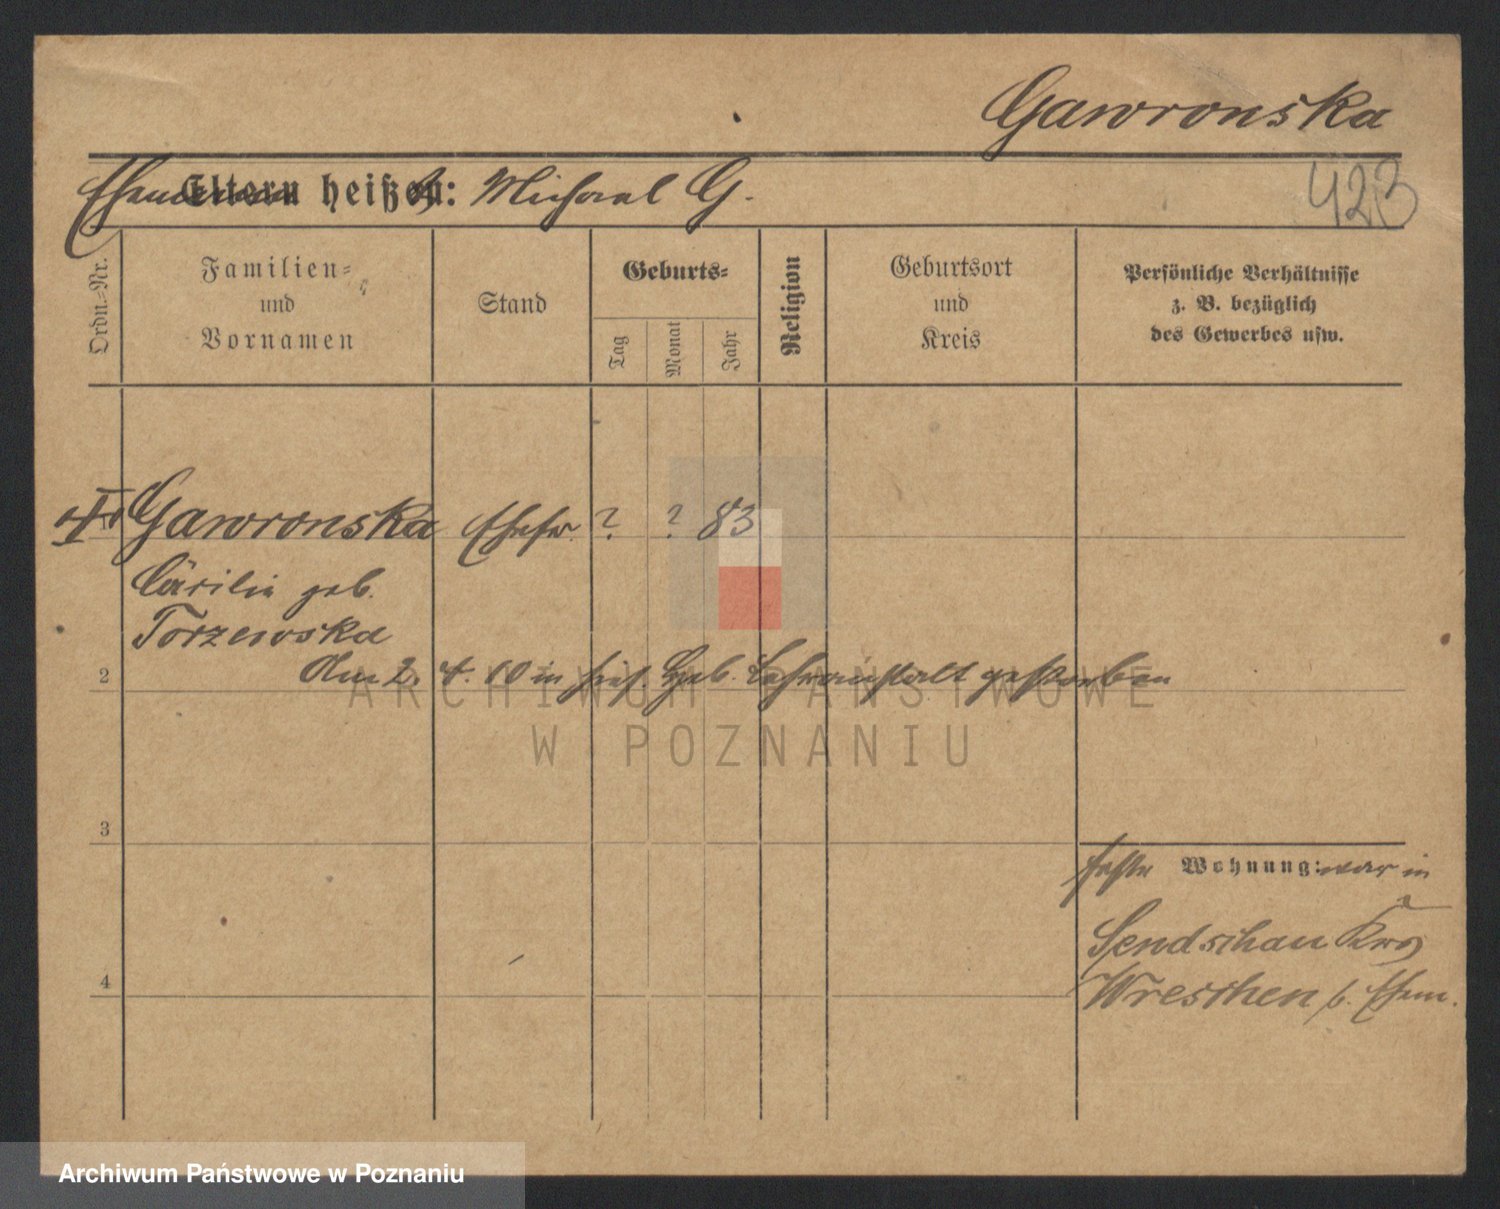 Gawronska
423
Eltern heißen: Michael G.
Ordn.-Nr.
Familien-
und
Vornamen
Stand
Geburts-
Tag
Monat
Jahr
Religion
Geburtsort
und
Kreis
Persönliche Verhältnisse
z. B. bezüglich
des Gewerbes usw.
Gawronska Ehefr. ? ? 83
Cäcilie geb.
Torzewska
2 Am 2. 4. 10 in hies. Geb. Lehranstalt gestorben
3
feste Wohnung: war in
Sendschau Krs
4 Wreschen b. Ehem.
ARCHIWUM PAŃSTWOWE
W POZNANIU
Archiwum Państwowe w Poznaniu